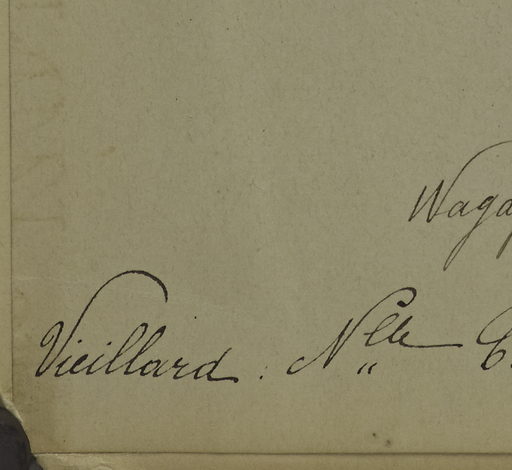 Waga
Vieillard. Nlle C